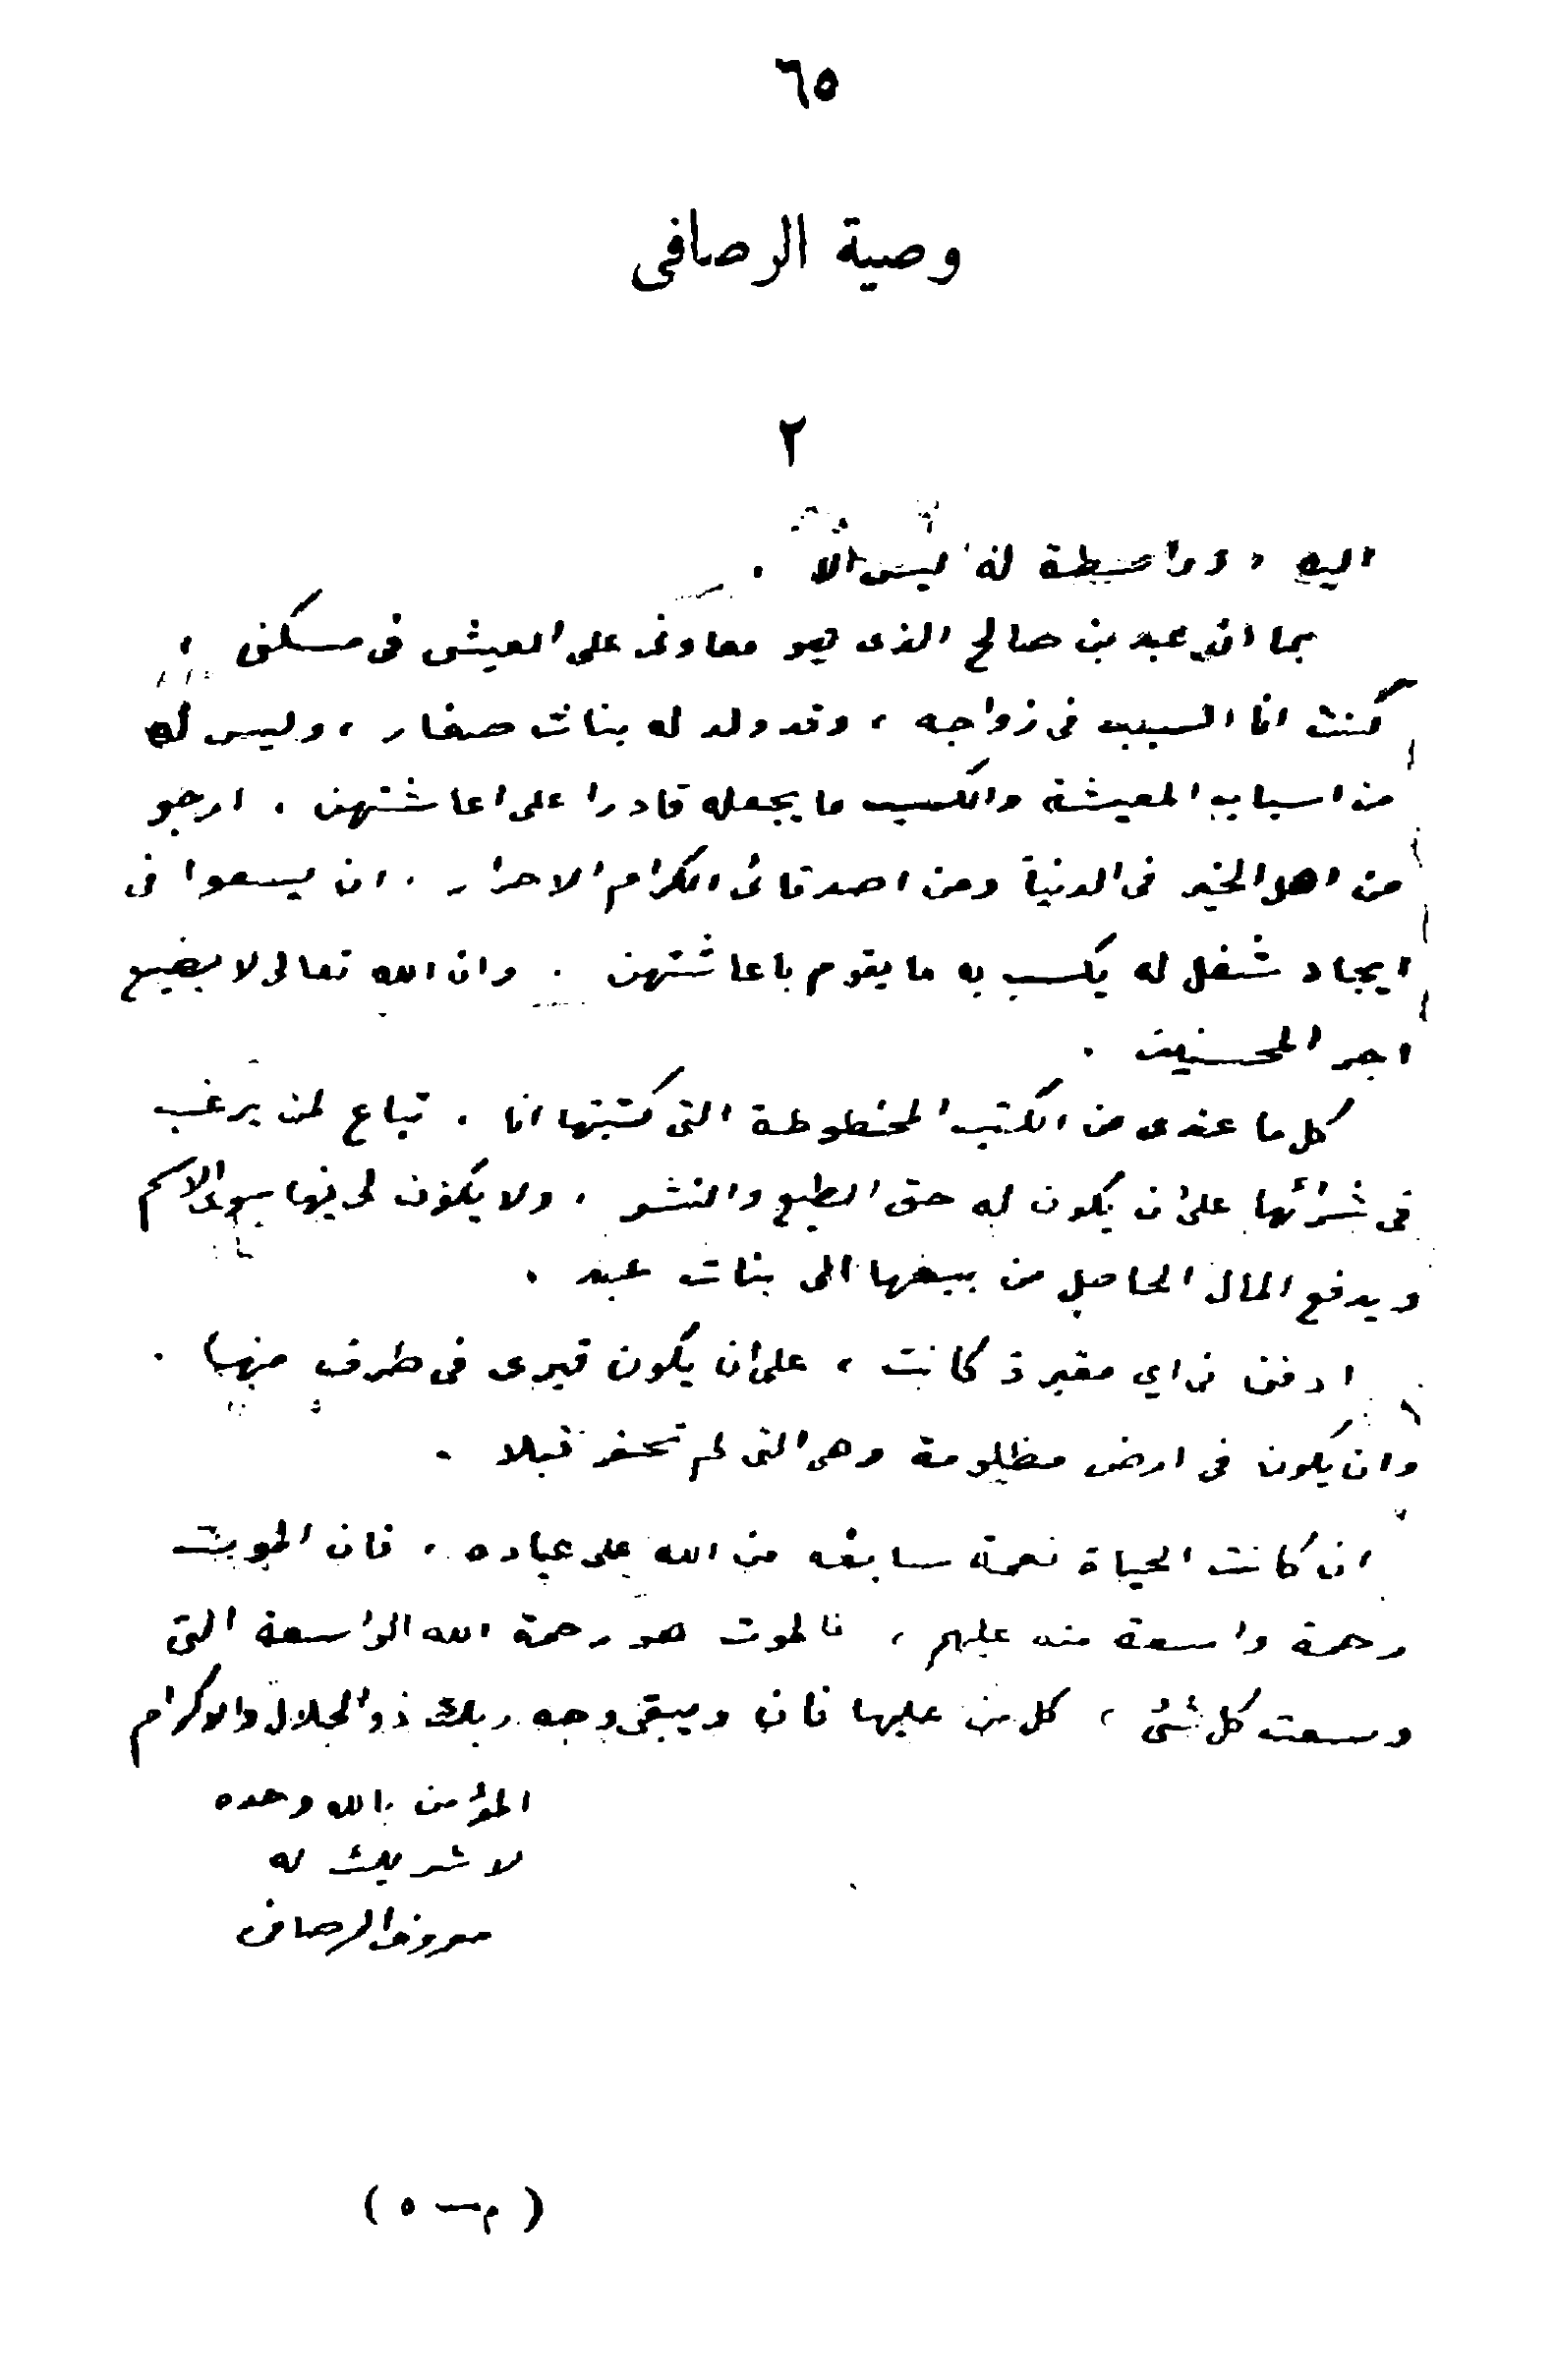 ٦٥
وصية الرصافى
٢
اليه وواسطة له ليس الا .
بما ان عبد بن صالح الذى هو معاونى على العيش فى مسكنى ،
كنت انا السبب فى زواجه ، وقد ولد له بنات صغار ، وليس له
من اسباب المعيشة والكسب ما يجعله قادرا على اعاشتهن . ارجو
من اهل الخير فى الدنيا ومن اصدقائى الكرام الاحرار . ان يسعوا فى
ايجاد شغل له يكسب به ما يقوم باعاشتهن . وان الله تعالى لا يضيع
اجر المحسنين .
كل ما عندى من الكتب المخطوطة التى كتبتها انا . تباع لمن يرغب
فى شرائها على ان يكون له حق الطبع والنشر . ولا يكون لى فيها سوى الاسم
ويدفع المال الحاصل من بيعها الى بنات عبد .
ادفن فى اي مقبرة كانت ، على ان يكون قبرى فى طرف منها .
وان يكون فى ارض مظلومة وهى التى لم تحفر قبلا .
ان كانت الحياة نعمة سابغة من الله على عباده ، فان الموت
رحمة واسعة منه عليهم ، فالموت هو رحمة الله الواسعة التى
وسعت كل شئ ، كل من عليها فان ويبقى وجه ربك ذو الجلال والاكرام
المؤمن بالله وحده
لا شريك له
معروف الرصافى
( م — ٥ )